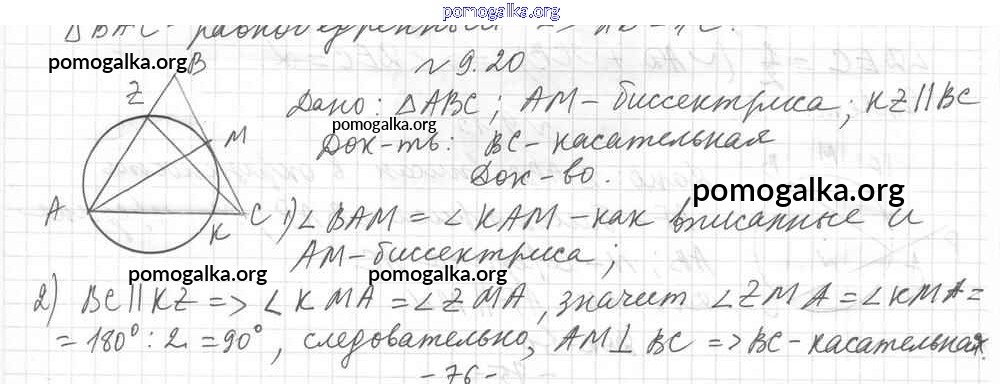 pomogalka.org
△BAC - равнобедренный =>
pomogalka.org
N 9.20
B
Z
M
A
C
K
Дано: △ABC; AM - биссектриса; KZ || BC
pomogalka.org
Док-ть: BC - касательная
Док-во.
pomogalka.org
1) ∠BAM = ∠KAM - как вписанные и
AM - биссектриса;
pomogalka.org pomogalka.org
2) BC || KZ => ∠KMA = ∠ZMA, значит ∠ZMA = ∠KMA =
= 180° : 2 = 90°, следовательно, AM ⊥ BC => BC - касательная.
- 76 -